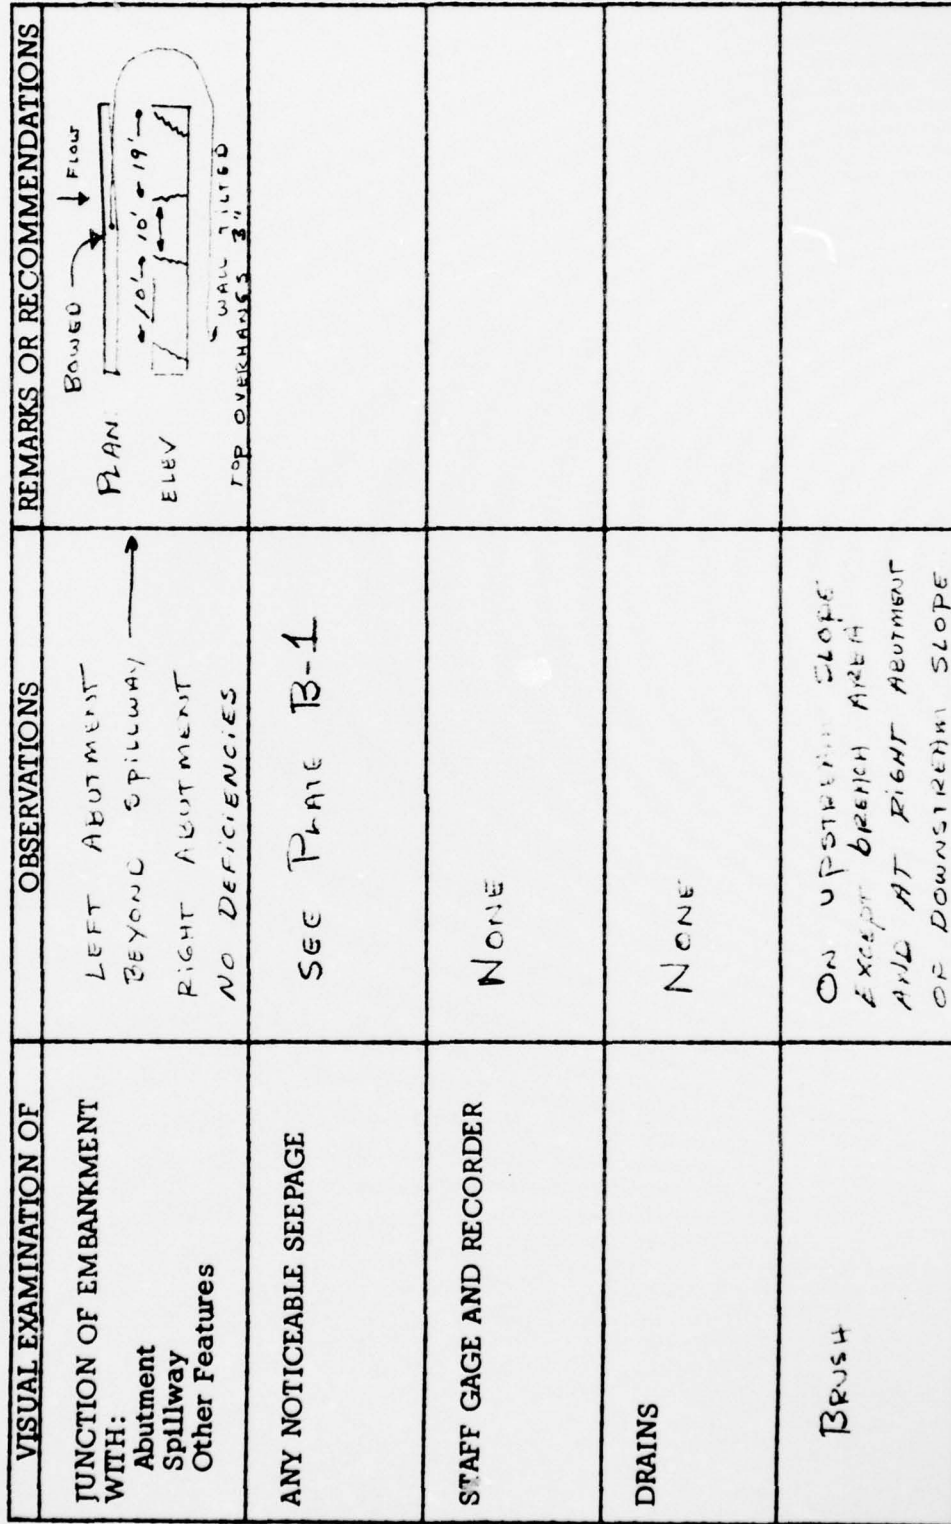 VISUAL EXAMINATION OF
OBSERVATIONS
REMARKS OR RECOMMENDATIONS
JUNCTION OF EMBANKMENT
WITH:
Abutment
Spillway
Other Features
LEFT ABUTMENT
BEYOND SPILLWAY
RIGHT ABUTMENT
NO DEFICIENCIES
BOWED
FLOW
PLAN
10' 10' 19'
ELEV
WALL TILTED
TOP OVERHANGS 3"
ANY NOTICEABLE SEEPAGE
SEE PLATE B-1
STAFF GAGE AND RECORDER
NONE
DRAINS
NONE
BRUSH
ON UPSTREAM SLOPE
EXCEPT BREACH AREA
AND AT RIGHT ABUTMENT
OF DOWNSTREAM SLOPE